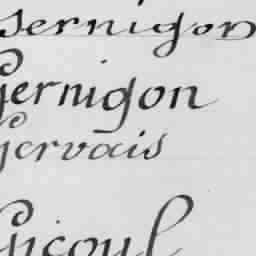 Sernigon
Gernigon
Gervais
Gicoul